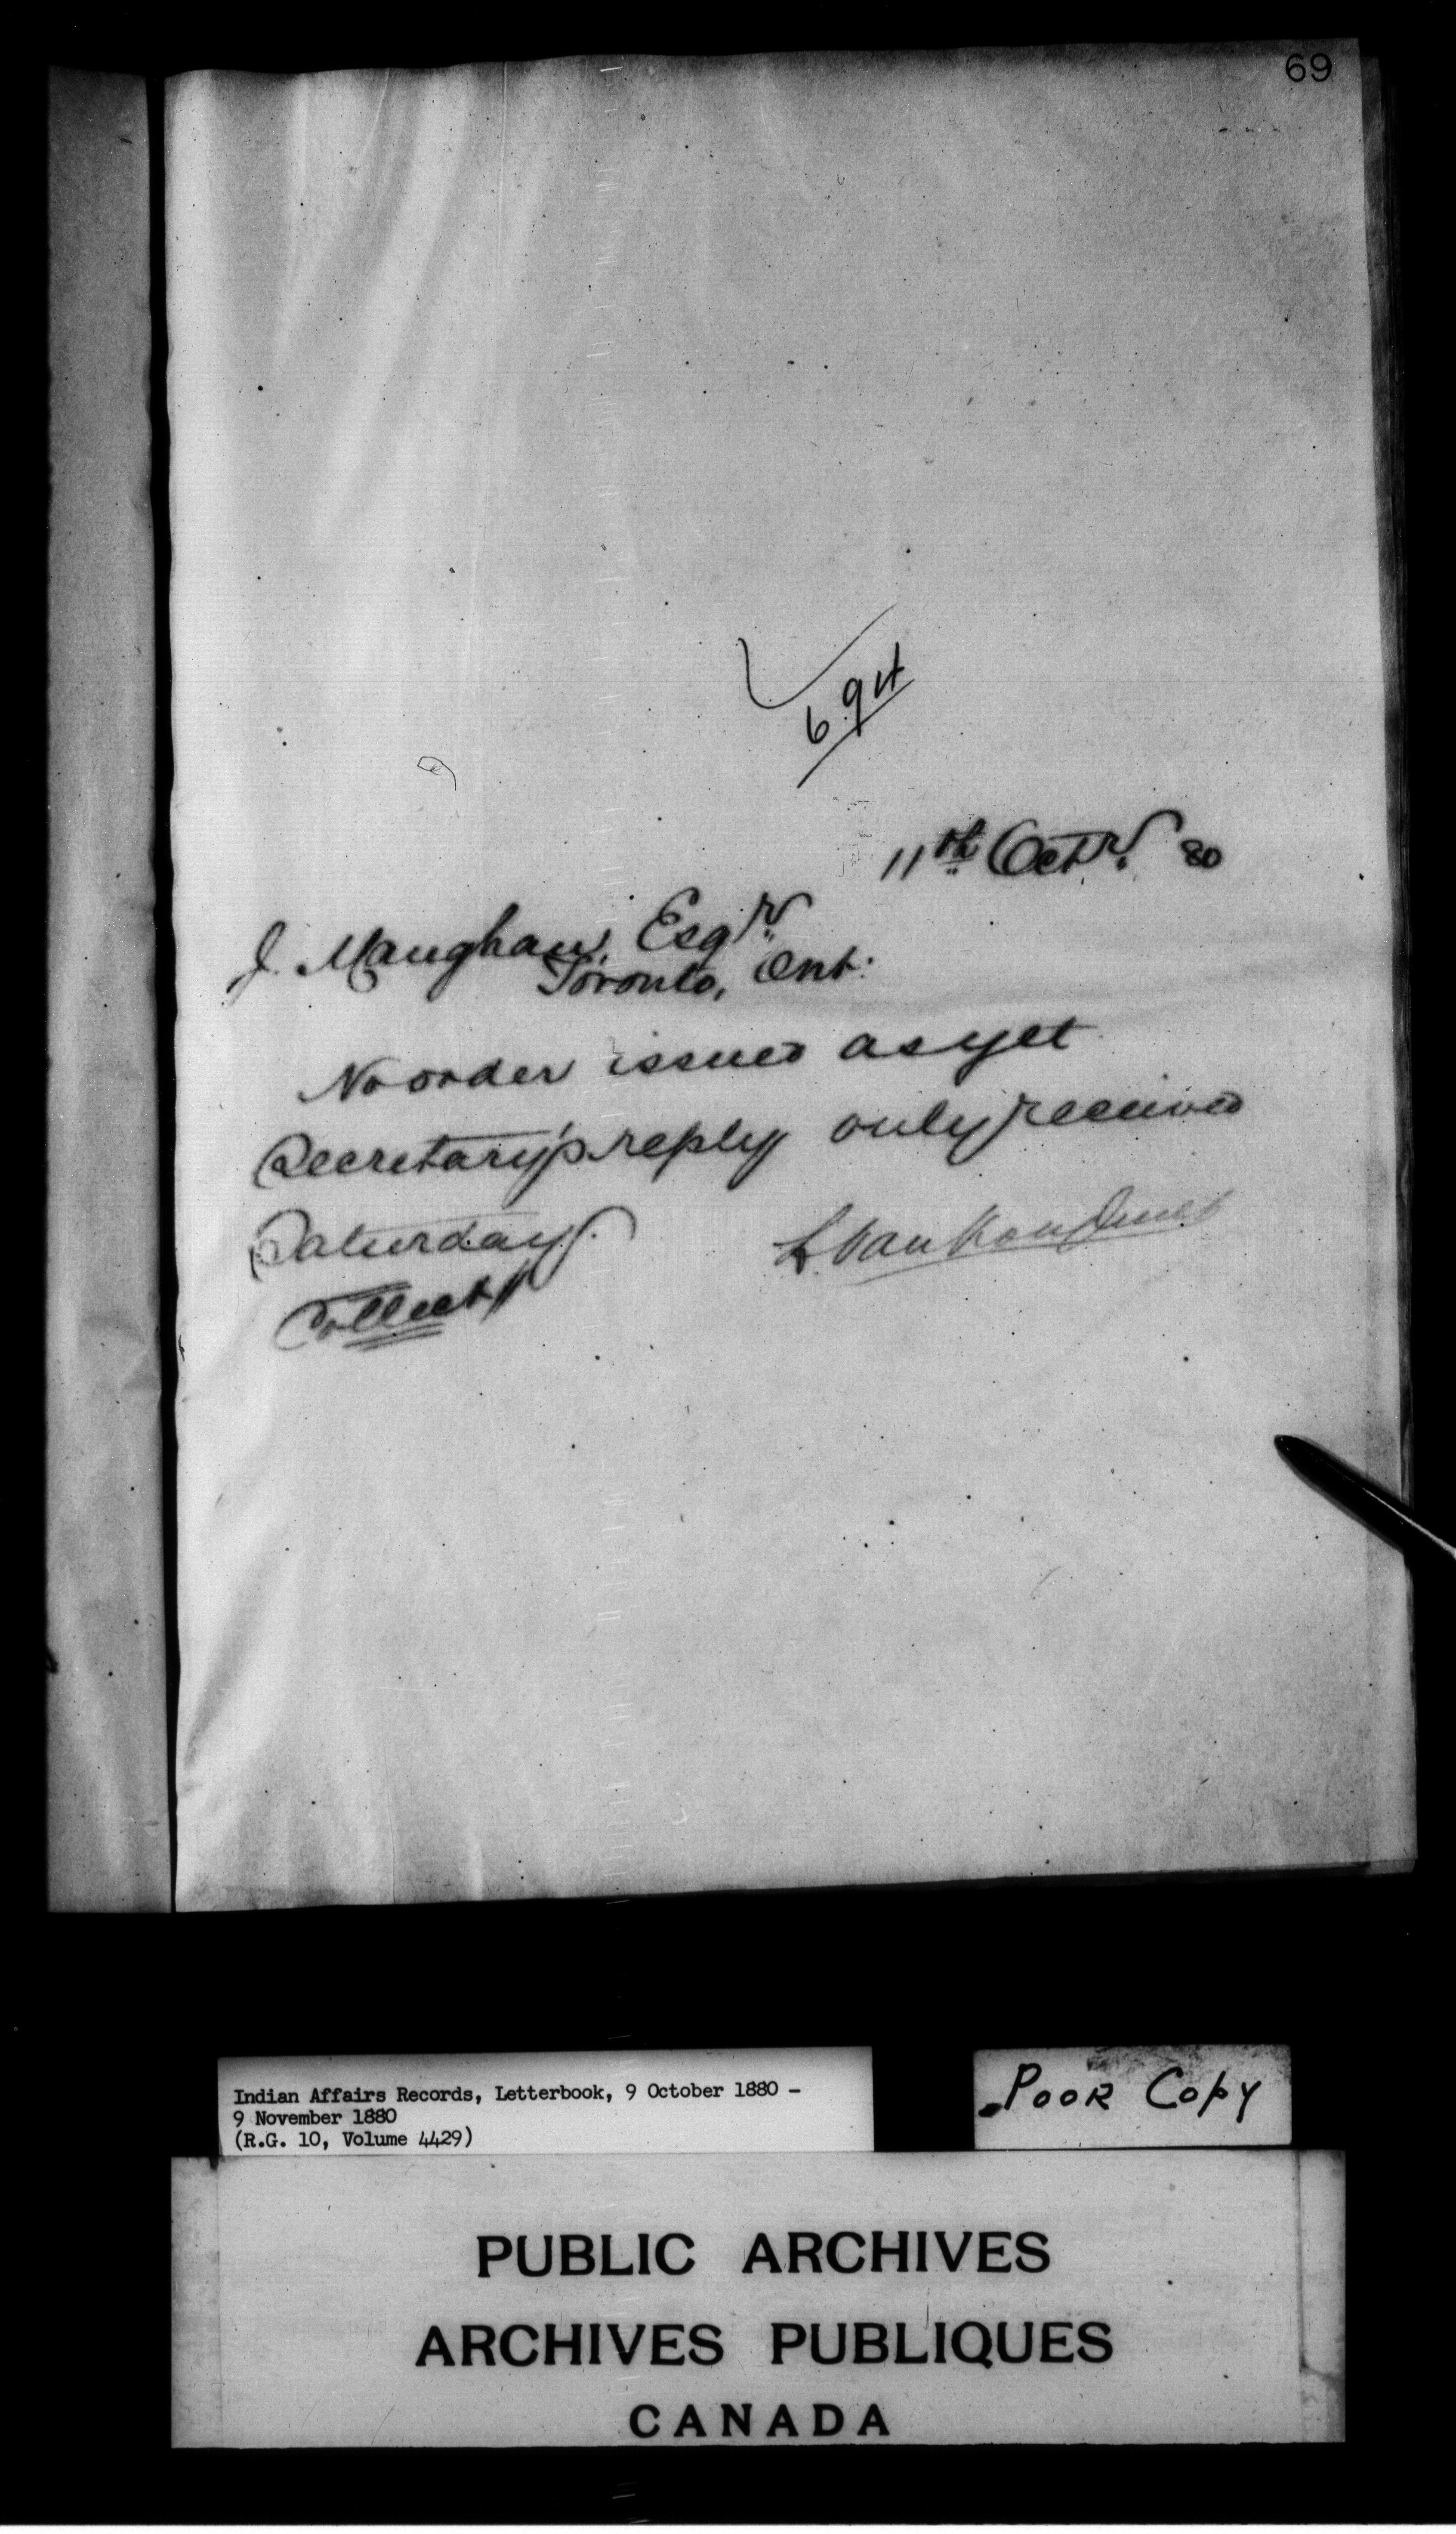 69
694
11th Octr. 80
J. Maughan, Esqr.
Toronto, Ont:
No order issued as yet
Secretary's reply only received
Saturday.
L. VanKoughnet
Collect
Indian Affairs Records, Letterbook, 9 October 1880 -
9 November 1880
(R.G. 10, Volume 4429)
Poor Copy
PUBLIC ARCHIVES
ARCHIVES PUBLIQUES
CANADA